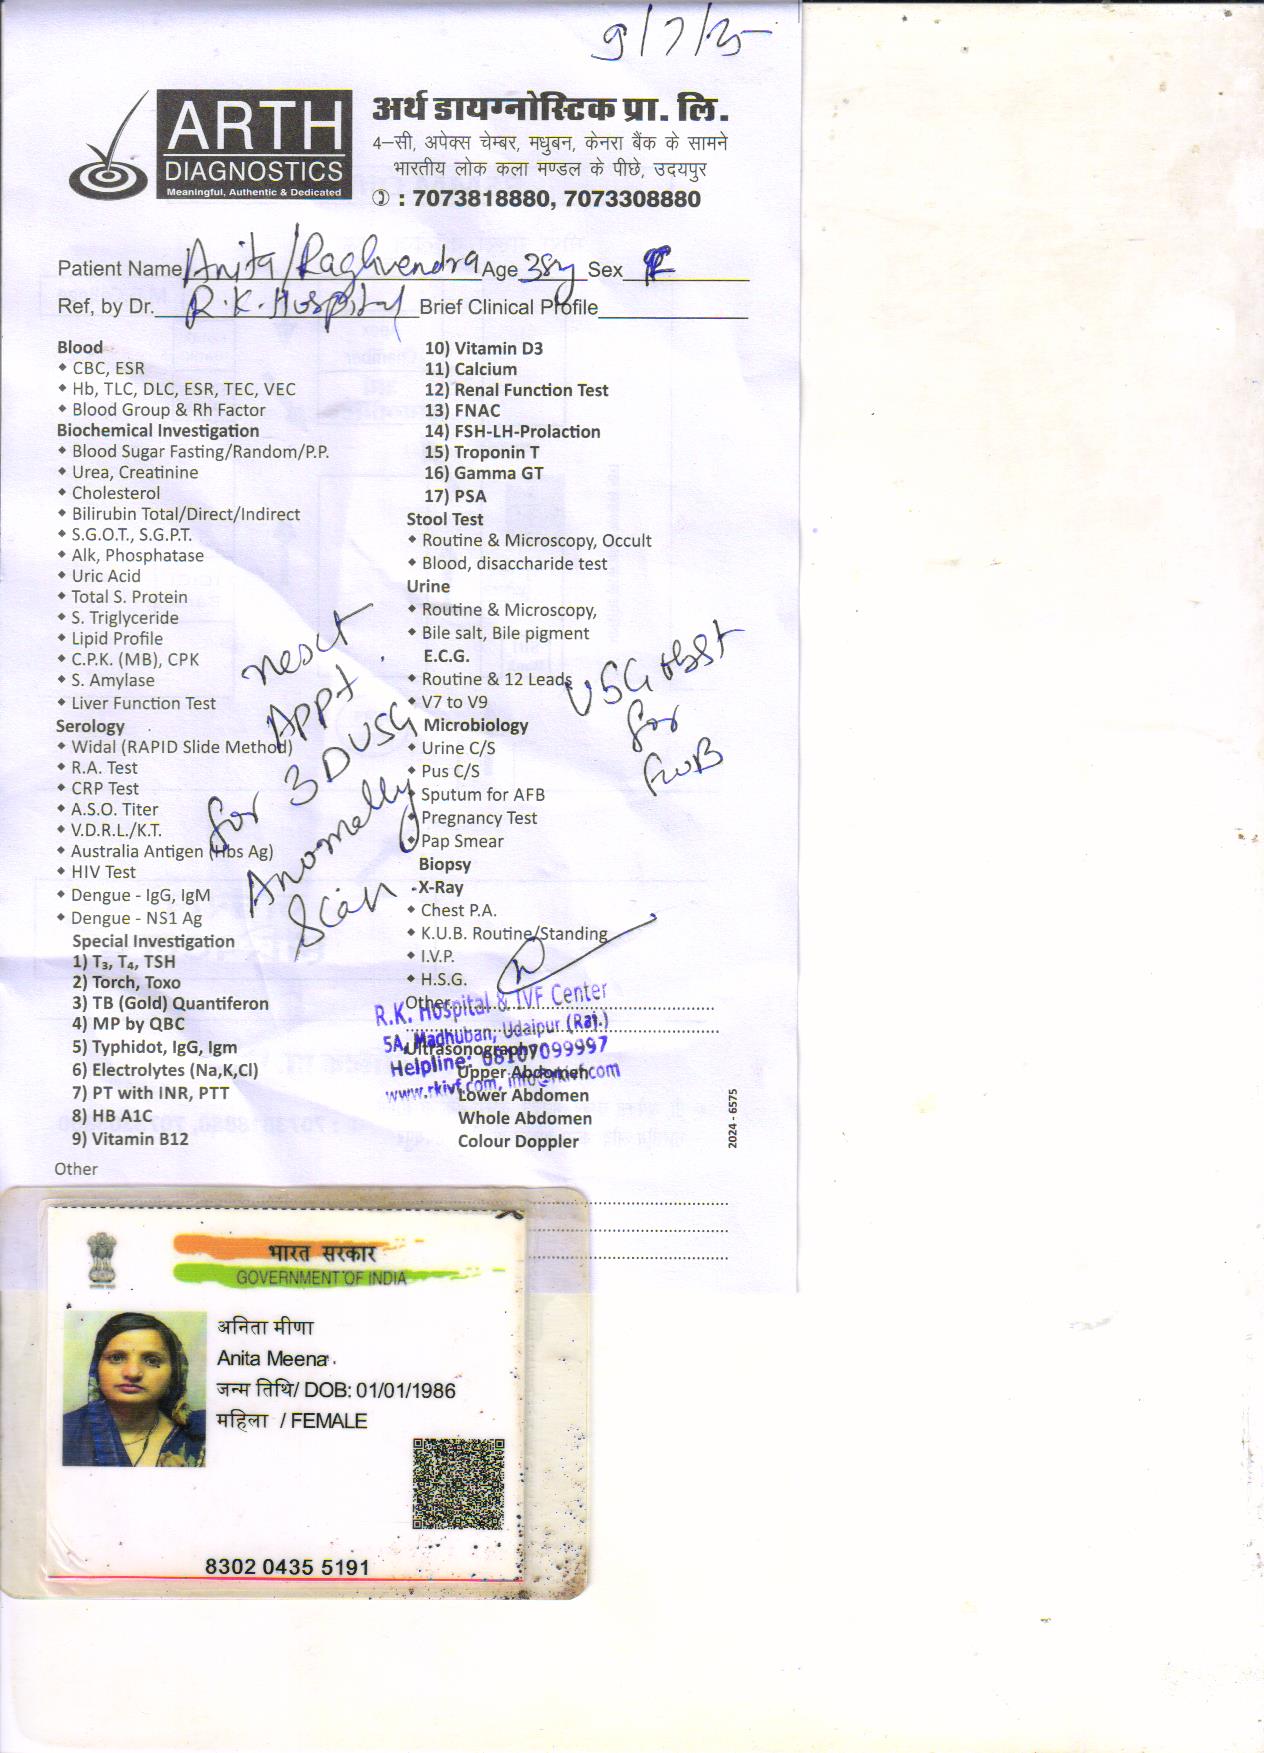 9/7/25
ARTH
DIAGNOSTICS
Meaningful, Authentic & Dedicated
अर्थ डायग्नोस्टिक प्रा. लि.
4-सी, अपेक्स चेम्बर, मधुबन, केनरा बैंक के सामने
भारतीय लोक कला मण्डल के पीछे, उदयपुर
: 7073818880, 7073308880
Patient Name Anita/Raghvendra Age 38y Sex F
Ref, by Dr. R.K. Hospital Brief Clinical Profile
Blood
CBC, ESR
Hb, TLC, DLC, ESR, TEC, VEC
Blood Group & Rh Factor
Biochemical Investigation
Blood Sugar Fasting/Random/P.P.
Urea, Creatinine
Cholesterol
Bilirubin Total/Direct/Indirect
S.G.O.T., S.G.P.T.
Alk, Phosphatase
Uric Acid
Total S. Protein
S. Triglyceride
Lipid Profile
C.P.K. (MB), CPK
S. Amylase
Liver Function Test
Serology
Widal (RAPID Slide Method)
R.A. Test
CRP Test
A.S.O. Titer
V.D.R.L./K.T.
Australia Antigen (Hbs Ag)
HIV Test
Dengue - IgG, IgM
Dengue - NS1 Ag
Special Investigation
1) T₃, T₄, TSH
2) Torch, Toxo
3) TB (Gold) Quantiferon
4) MP by QBC
5) Typhidot, IgG, Igm
6) Electrolytes (Na,K,Cl)
7) PT with INR, PTT
8) HB A1C
9) Vitamin B12
Other
10) Vitamin D3
11) Calcium
12) Renal Function Test
13) FNAC
14) FSH-LH-Prolaction
15) Troponin T
16) Gamma GT
17) PSA
Stool Test
Routine & Microscopy, Occult
Blood, disaccharide test
Urine
Routine & Microscopy,
Bile salt, Bile pigment
E.C.G.
Routine & 12 Leads
V7 to V9
Microbiology
Urine C/S
Pus C/S
Sputum for AFB
Pregnancy Test
Pap Smear
Biopsy
X-Ray
Chest P.A.
K.U.B. Routine/Standing
I.V.P.
H.S.G.
Other
Ultrasonography
Upper Abdomen
Lower Abdomen
Whole Abdomen
Colour Doppler
2024 - 6575
next
APPt
for 3D USG
Anomally
Scan
USG obst
for
FWB
R.K. Hospital & IVF Center
5A, Madhuban, Udaipur (Raj.)
Helpline: 08107099997
www.rkivf.com,
भारत सरकार
GOVERNMENT OF INDIA
अनिता मीणा
Anita Meena
जन्म तिथि/ DOB: 01/01/1986
महिला / FEMALE
8302 0435 5191